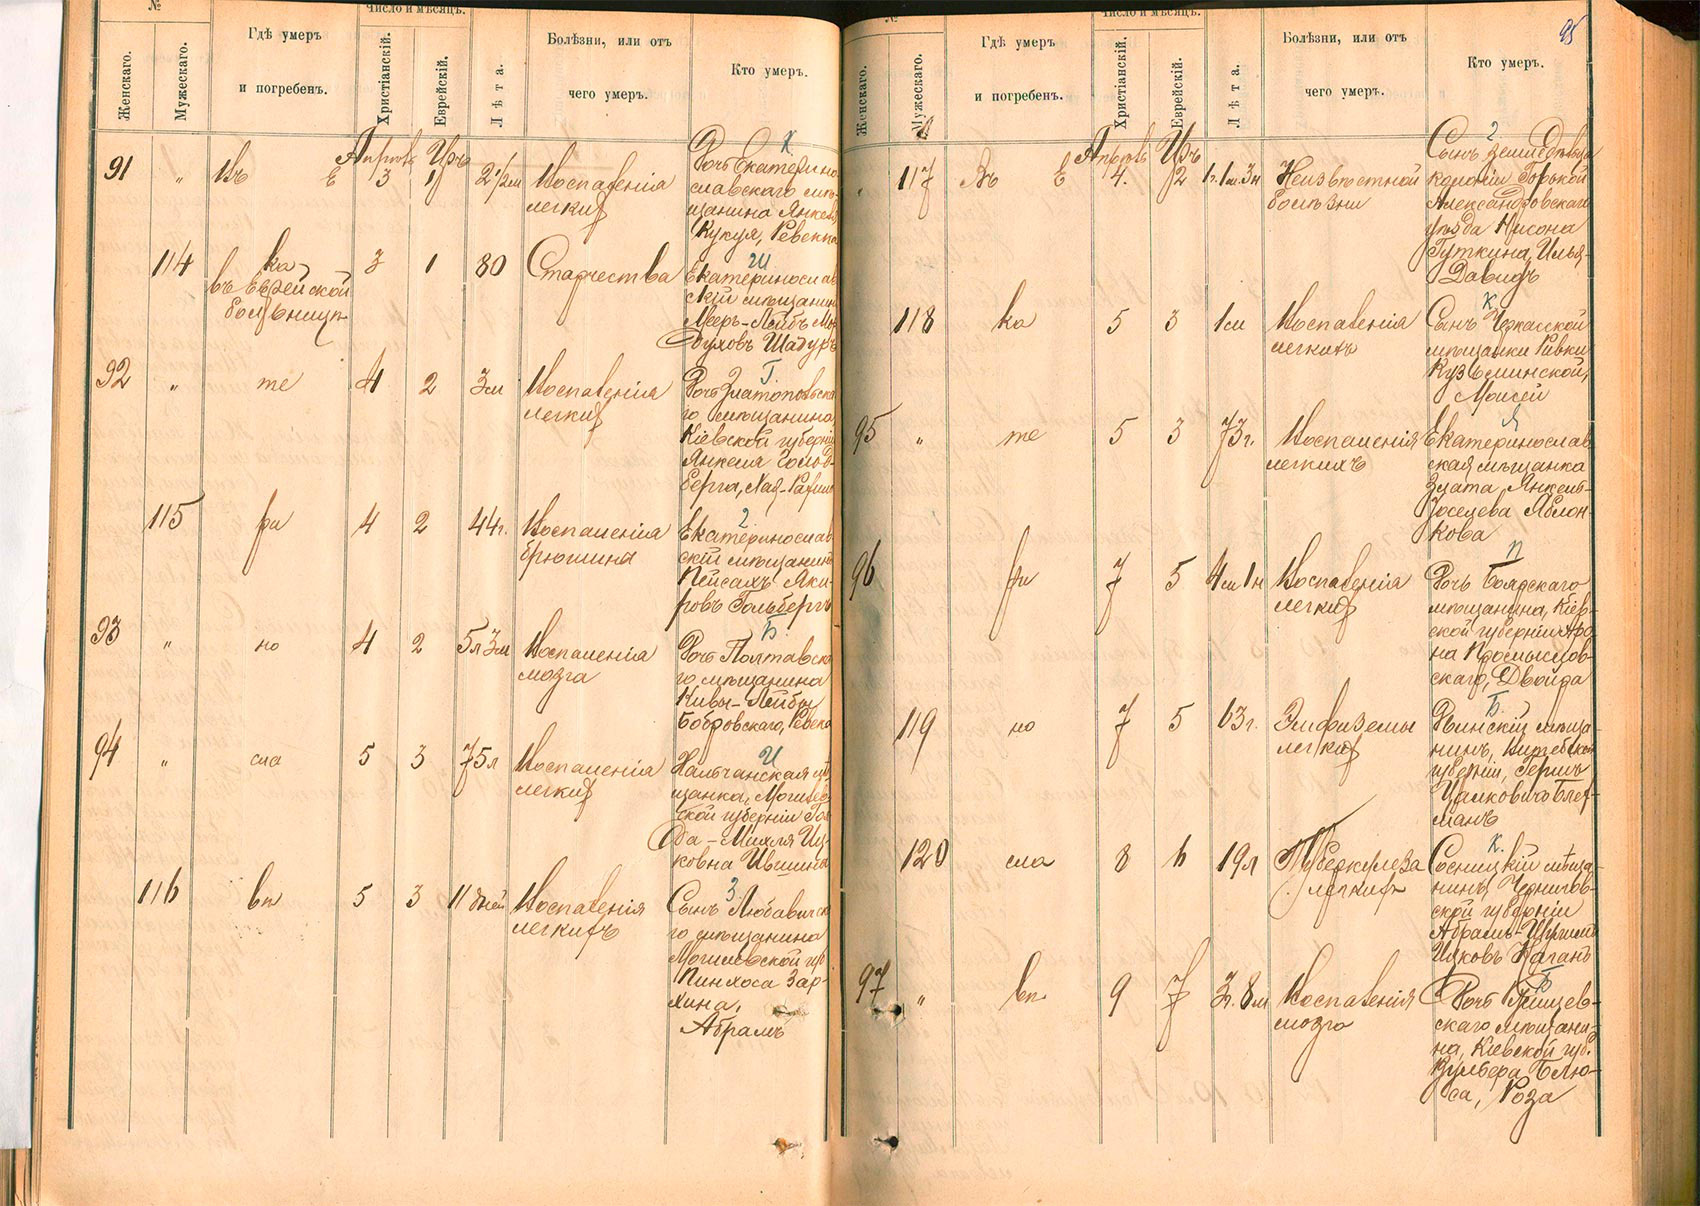 №
Число и мѣсяцъ.
Женскаго.
Мужескаго.
Гдѣ умеръ
и погребенъ.
Христіанскій.
Еврейскій.
Лѣта.
Болѣзни, или отъ
чего умеръ.
Кто умеръ.
91 " Въ Е 3 1 2½м Воспаленія
легкихъ
Дочь Екатерино-
славскаго мѣ-
щанина Янкеля
Кукуя, Ревекка
114 ка 3 1 80 Старчества
въ Еврейской
больницѣ
Ш
Екатеринослав
скій мѣщанин
Меер-Лейбъ Мор
духовъ Шадуръ
92 " те 4 2 3м Воспаленія
легкихъ
Г
Дочь Златопольска
го мѣщанина,
Кіевской губерніи
Янкеля Гольд-
берга, Хая-Рахиль
115 ри 4 2 44г. Воспаленія
брюшины
Екатеринослав
скій мѣщанинъ
Пейсахъ Яки-
ровъ Гольбергъ
93 " но 4 2 5л3м Воспаленія
мозга
Б.
Дочь Полтавска
го мѣщанина
Кивы-Лейбы
Бобровскаго, Ревека
94 " сла 5 3 75л Воспаленія
легкихъ
И
мѣ-
щанка, Могилев
ской губерніи Гол
да-Михля Иц-
ковна Ившина
116 вѣ 5 3 11 дней Воспаленія
легкихъ
З
Сынъ Любавичска
го мѣщанина
Могилевской губ
Пинхоса Зар-
хина,
Абрамъ
95
№
Число и мѣсяцъ.
Женскаго.
Мужескаго.
Гдѣ умеръ
и погребенъ.
Христіанскій.
Еврейскій.
Лѣта.
Болѣзни, или отъ
чего умеръ.
Кто умеръ.
117 Въ Е 4. 2 1г.1м.3н Неизвѣстной
болѣзни
Сынъ земледѣльца
колоніи Горькой
Александровскаго
уѣзда Нисона
Гуткина, Илья-
Давидъ
118 ка 5 3 1м Воспаленія
легкихъ
К
Сынъ Черкасской
мѣщанки Ривки
Кузьминской,
Моисей
95 " те 5 3 73г. Воспаленія
легкихъ
Я
Екатеринослав
ская мѣщанка
Злата Янкель-
Іосецева Яблон-
кова
96 ри 7 5 4м1н Воспаленія
легкихъ
П
Дочь Боядскаго
мѣщанина, Кіев-
ской губерніи Аро
на Промыслов-
скаго, Двойра
119 но 7 5 63г. Эмфиземы
легкихъ
Б.
Двинскій мѣща
нинъ, Витебской
губерніи, Гершъ
Цалковичъ Блех-
манъ
120 сла 8 6 19л Туберкулеза
легкихъ
К.
Сосницкій мѣща-
нинъ, Чернигов-
ской губерніи
Ицковъ Каганъ
97 " вѣ 9 7 3г.8м Воспаленія
мозга
Б
Дочь Ржищев-
скаго мѣщани-
на, Кіевской губ.
Вульфа Блю-
са, Роза